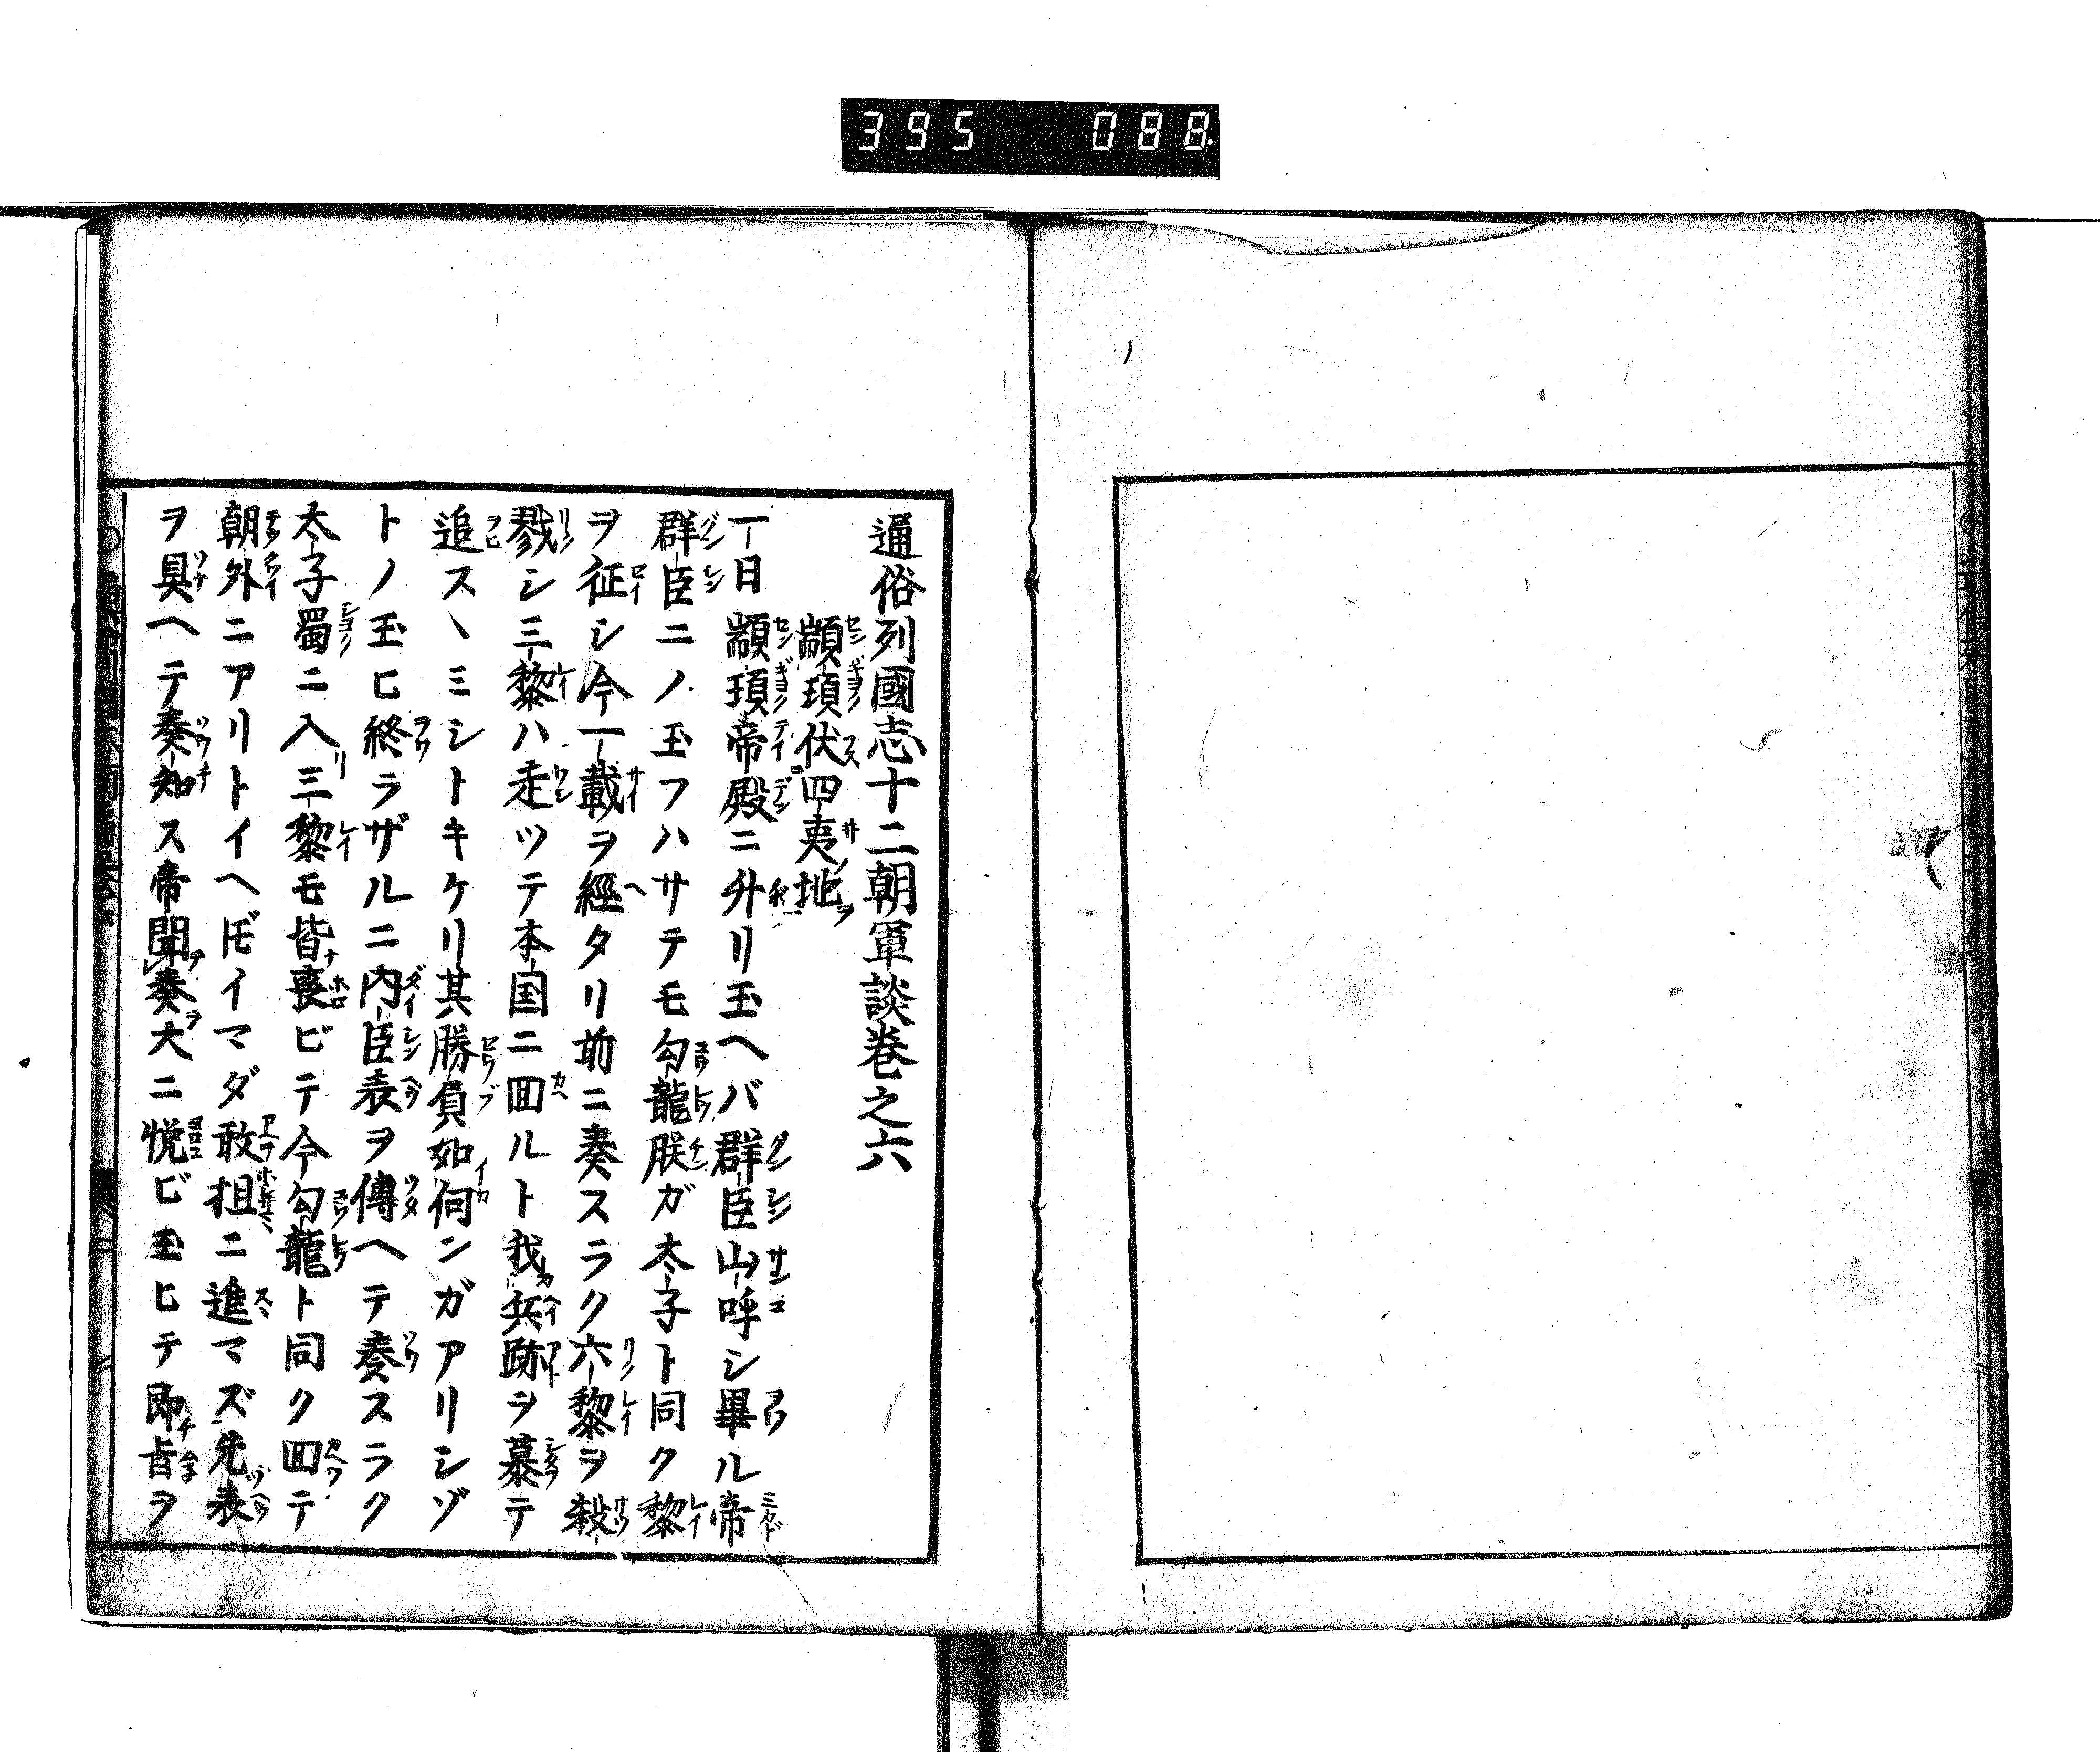 395 088
通俗列國志十二朝軍談巻之六
顓頊伏四夷地
一日顓頊帝殿ニ升リ玉ヘバ群臣山呼シ畢ル帝
群臣ニノ玉フハサテモ勾龍朕ガ太子ト同ク黎
ヲ征シ今一載ヲ經タリ前ニ奏スラク六黎ヲ殺
戮シ三黎ハ走ツテ本国ニ回ルト我兵跡ヲ慕テ
追スヽミシトキケリ其勝負如何ンガアリシゾ
トノ玉ヒ終ラザルニ内臣表ヲ傳ヘテ奏スラク
太子蜀ニ入三黎モ皆喪ビテ今勾龍ト同ク回テ
朝外ニアリトイヘ𪜈イマダ敢徂ニ進マズ先表
ヲ具ヘテ奏知ス帝聞奏大ニ悦ビ玉ヒテ即旨ヲ